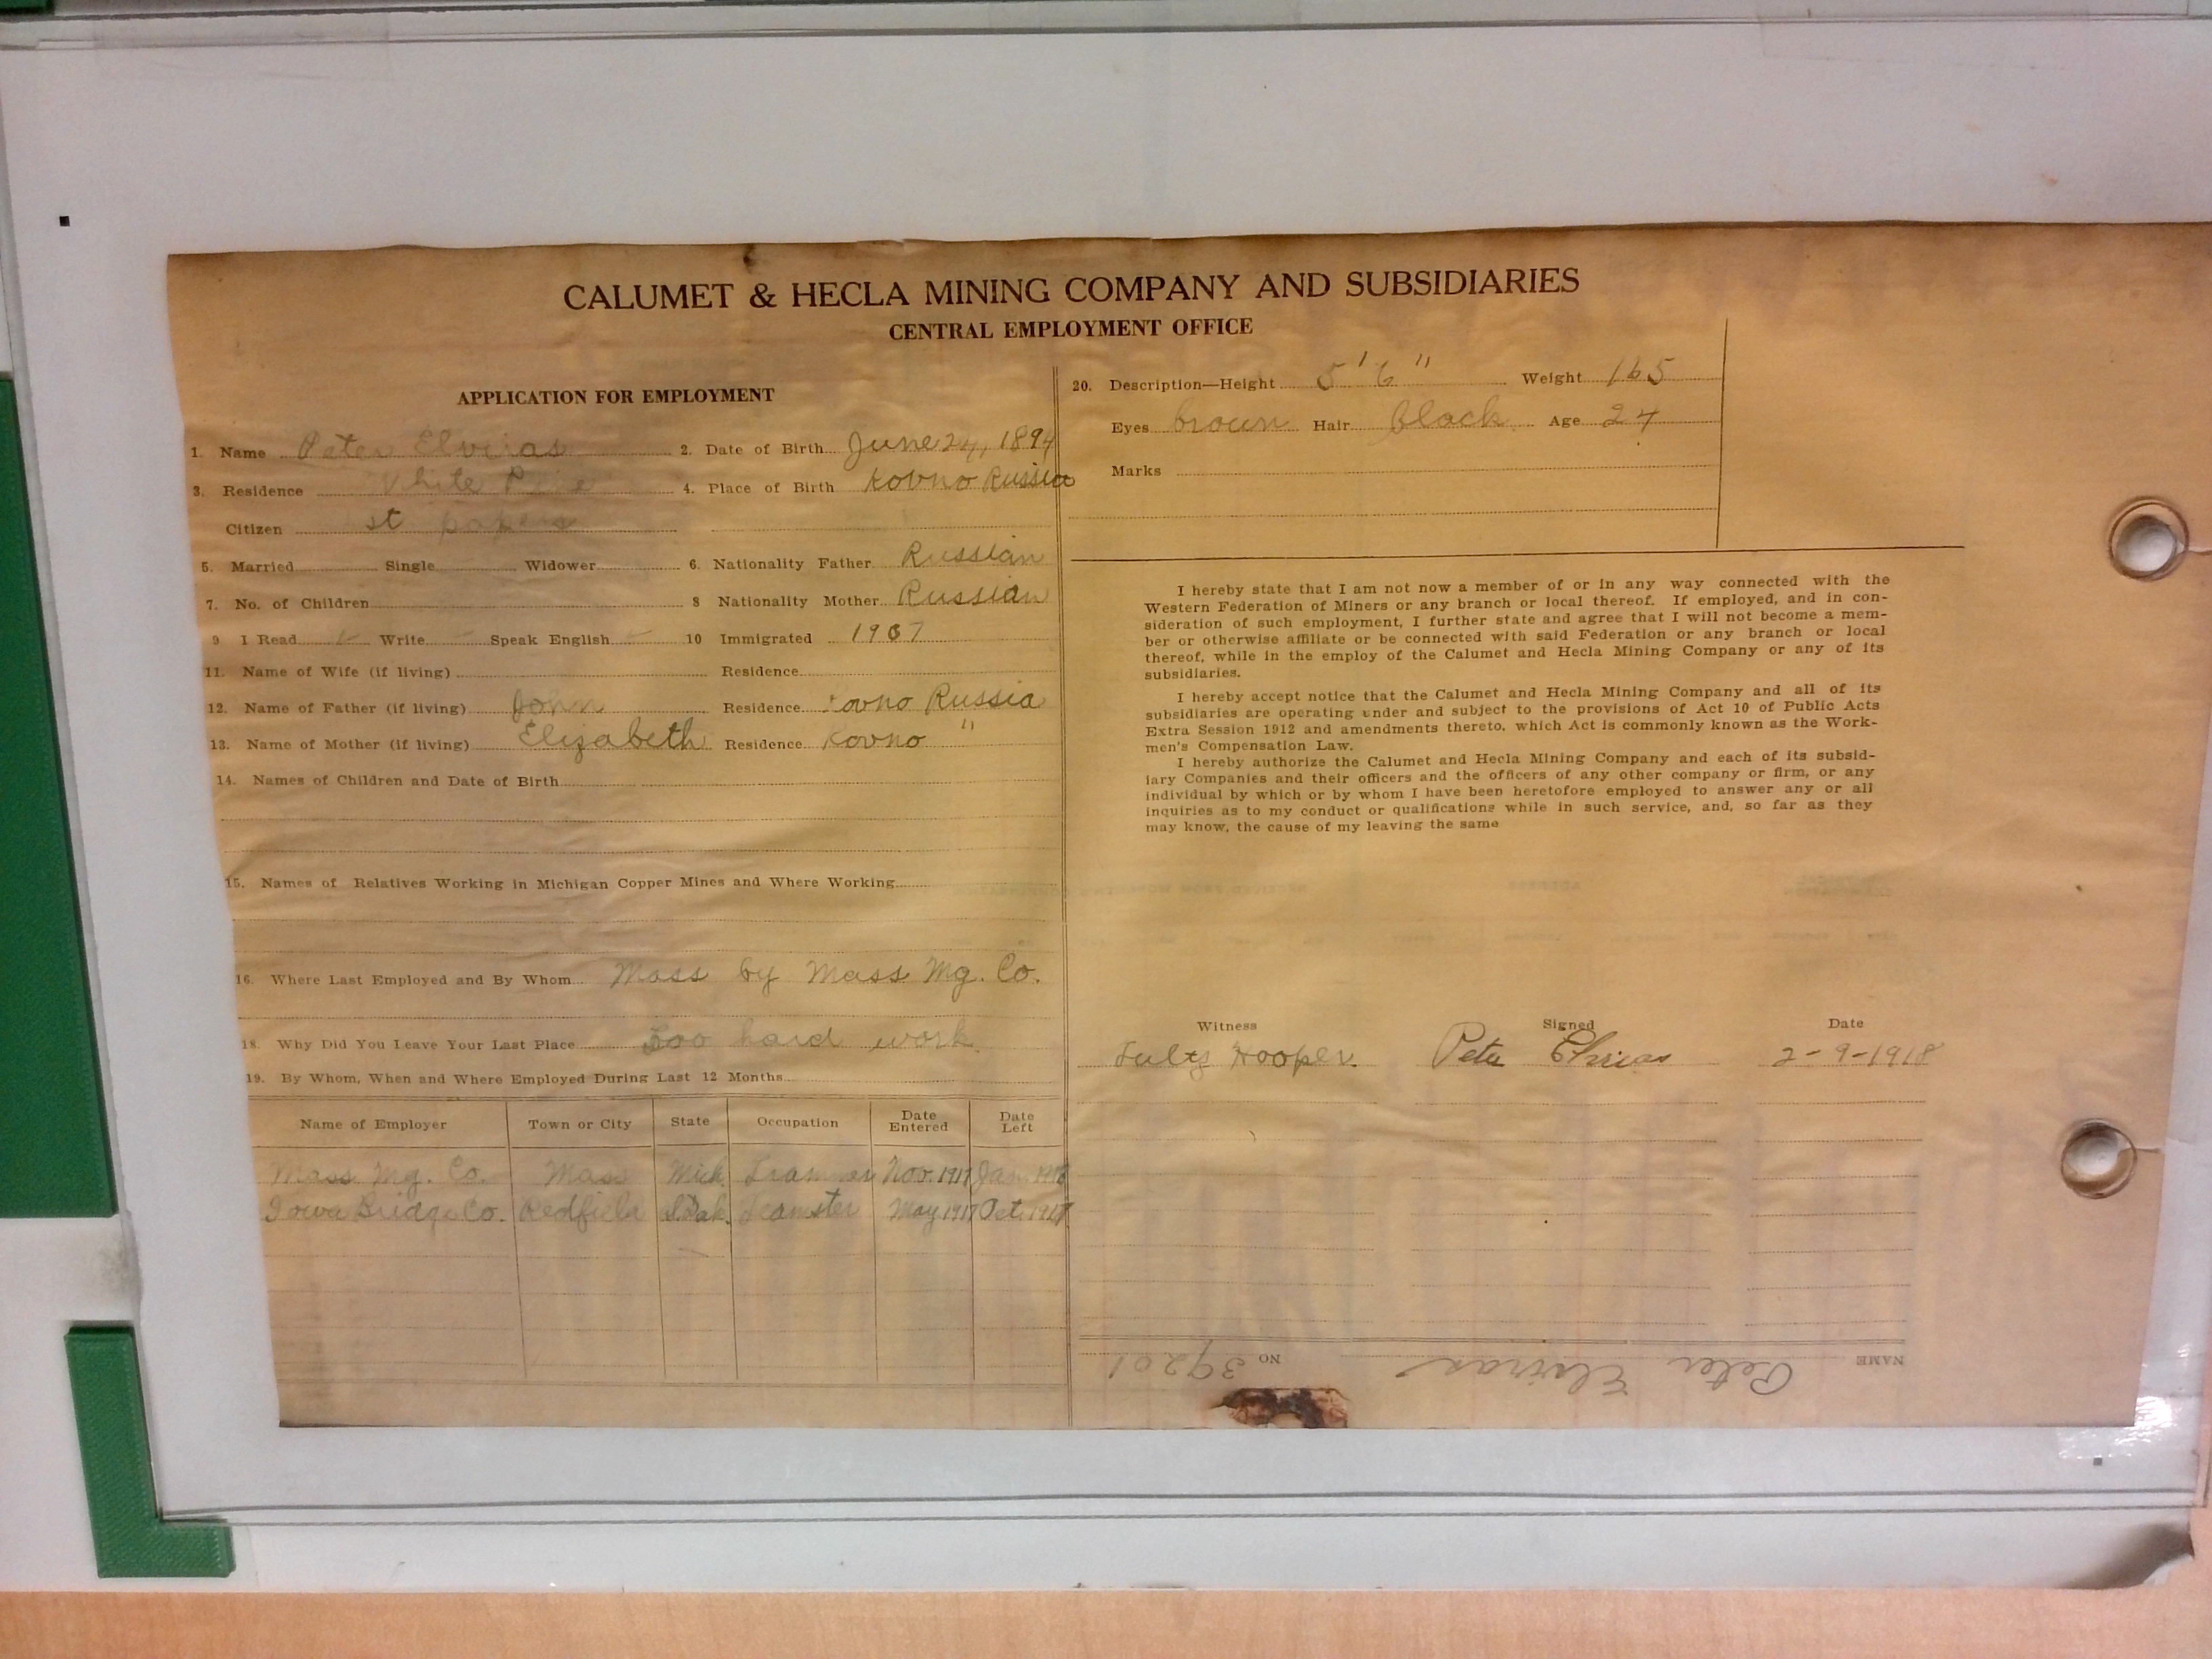 CALUMET & HECLA MINING COMPANY AND SUBSIDIARIES
CENTRAL EMPLOYMENT OFFICE
APPLICATION FOR EMPLOYMENT
1. Name Peter Elviras 2. Date of Birth June 24, 1894
3. Residence White Pine 4. Place of Birth Kovno Russia
Citizen st papers
5. Married Single Widower 6. Nationality Father Russian
7. No. of Children 8 Nationality Mother Russian
9 I Read Write Speak English 10 Immigrated 1907
11. Name of Wife (if living) Residence
12. Name of Father (if living) John Residence Kovno Russia
13. Name of Mother (if living) Elizabeth Residence Kovno "
14. Names of Children and Date of Birth
15. Names of Relatives Working in Michigan Copper Mines and Where Working
16. Where Last Employed and By Whom Mass by Mass Mg. Co.
18. Why Did You Leave Your Last Place Too hard work
19. By Whom, When and Where Employed During Last 12 Months
Name of Employer Town or City State Occupation Date Entered Date Left
Mass Mg. Co. Mass Mich. Trammer Nov. 1917 Jan 1918
Iowa Bridge Co. Redfield S. Dak. Teamster May 1917 Oct. 1917
20. Description—Height 5' 6" Weight 165
Eyes brown Hair black Age 24
Marks
I hereby state that I am not now a member of or in any way connected with the
Western Federation of Miners or any branch or local thereof. If employed, and in con-
sideration of such employment, I further state and agree that I will not become a mem-
ber or otherwise affiliate or be connected with said Federation or any branch or local
thereof, while in the employ of the Calumet and Hecla Mining Company or any of its
subsidiaries.
I hereby accept notice that the Calumet and Hecla Mining Company and all of its
subsidiaries are operating under and subject to the provisions of Act 10 of Public Acts
Extra Session 1912 and amendments thereto, which Act is commonly known as the Work-
men's Compensation Law.
I hereby authorize the Calumet and Hecla Mining Company and each of its subsid-
iary Companies and their officers and the officers of any other company or firm, or any
individual by which or by whom I have been heretofore employed to answer any or all
inquiries as to my conduct or qualifications while in such service, and, so far as they
may know, the cause of my leaving the same
Witness Signed Date
Hooper. Peter Elviras 2-9-1918
NAME Peter Elviras NO 39201